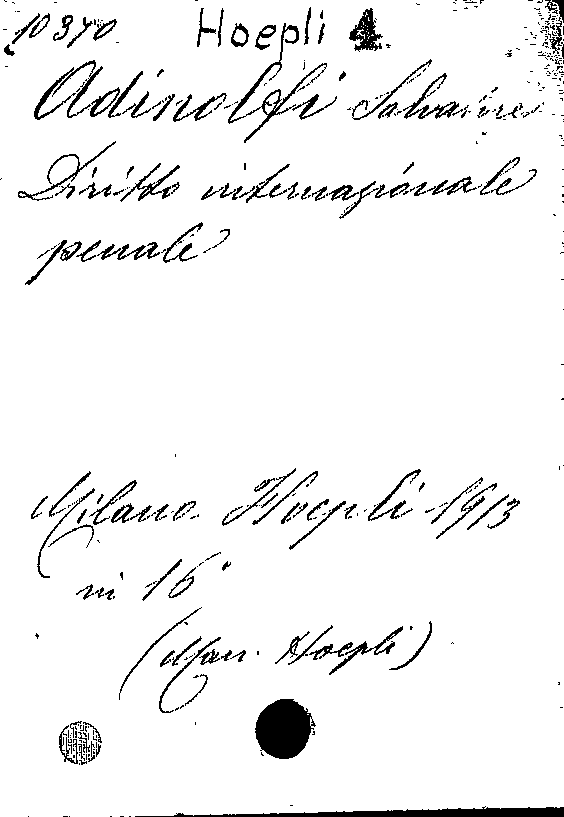 10370 Hoepli 4
Adinolfi Salvatore
Diritto internazionale
penale
Milano Hoepli 1913
in 16°
(Man. Hoepli)